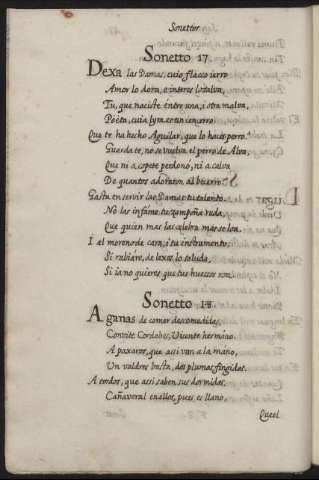 Sonettos
Sonetto 17.
Dexa las Damas, cuio flaco ierro
Amor lo dora, e interes lo salva,
Tu, que naciste entre una, i otra malva,
Poeta, cuia lyra es un cencerro.
Que te ha hecho Aguilar, que lo hazes perro.
Guarda te, no se vuelva el perro de Alva,
Que ni a copete perdonó, ni a calva
De quantos adoraron al bezerro.
Gasta en servir las Damas tu talento.
No las infame tu zampoña ruda,
Que quien mas las celebra mas se loa.
I al moreno de cara, i tu instrumento,
Si rabiare, de lexos lo saluda,
Si ia no quieres que tus huesos
Sonetto 18
A ganas de comer descomedidas,
Convite Cordobes, Vicente hermano.
A paxaros, que assi van a la mano,
Un valdres basta, dos plumas fingidas.
A cerdos, que assi saben sus dormidas,
Cañaveral en ellos, pues es llano,
Que el